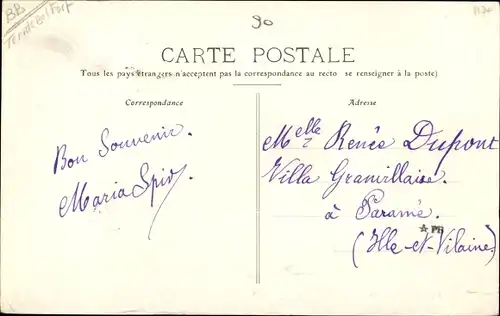 BB
Terr de Belfort
90
CARTE POSTALE
Tous les pays étrangers n'acceptent pas la correspondance au recto se renseigner à la poste)
Correspondance
Bon Souvenir.
Maria
Adresse
Melle Renés Dupont
Villa Granvillaise.
à Paramé.
PB
(Ille-et-Vilaine)